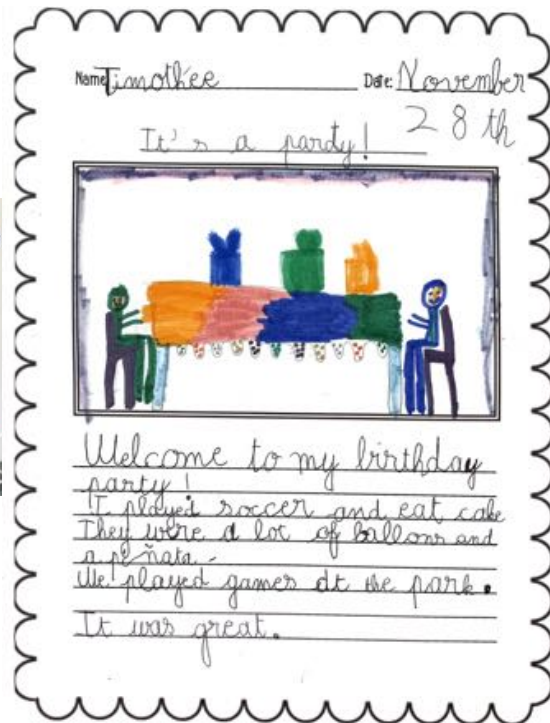 Name Timothée Date: November
28th
It's a pardy!
Welcome to my birthday
party!
I played soccer and eat cake
They were a lot of ballons and
a piñata.
We played games at the park.
It was great.